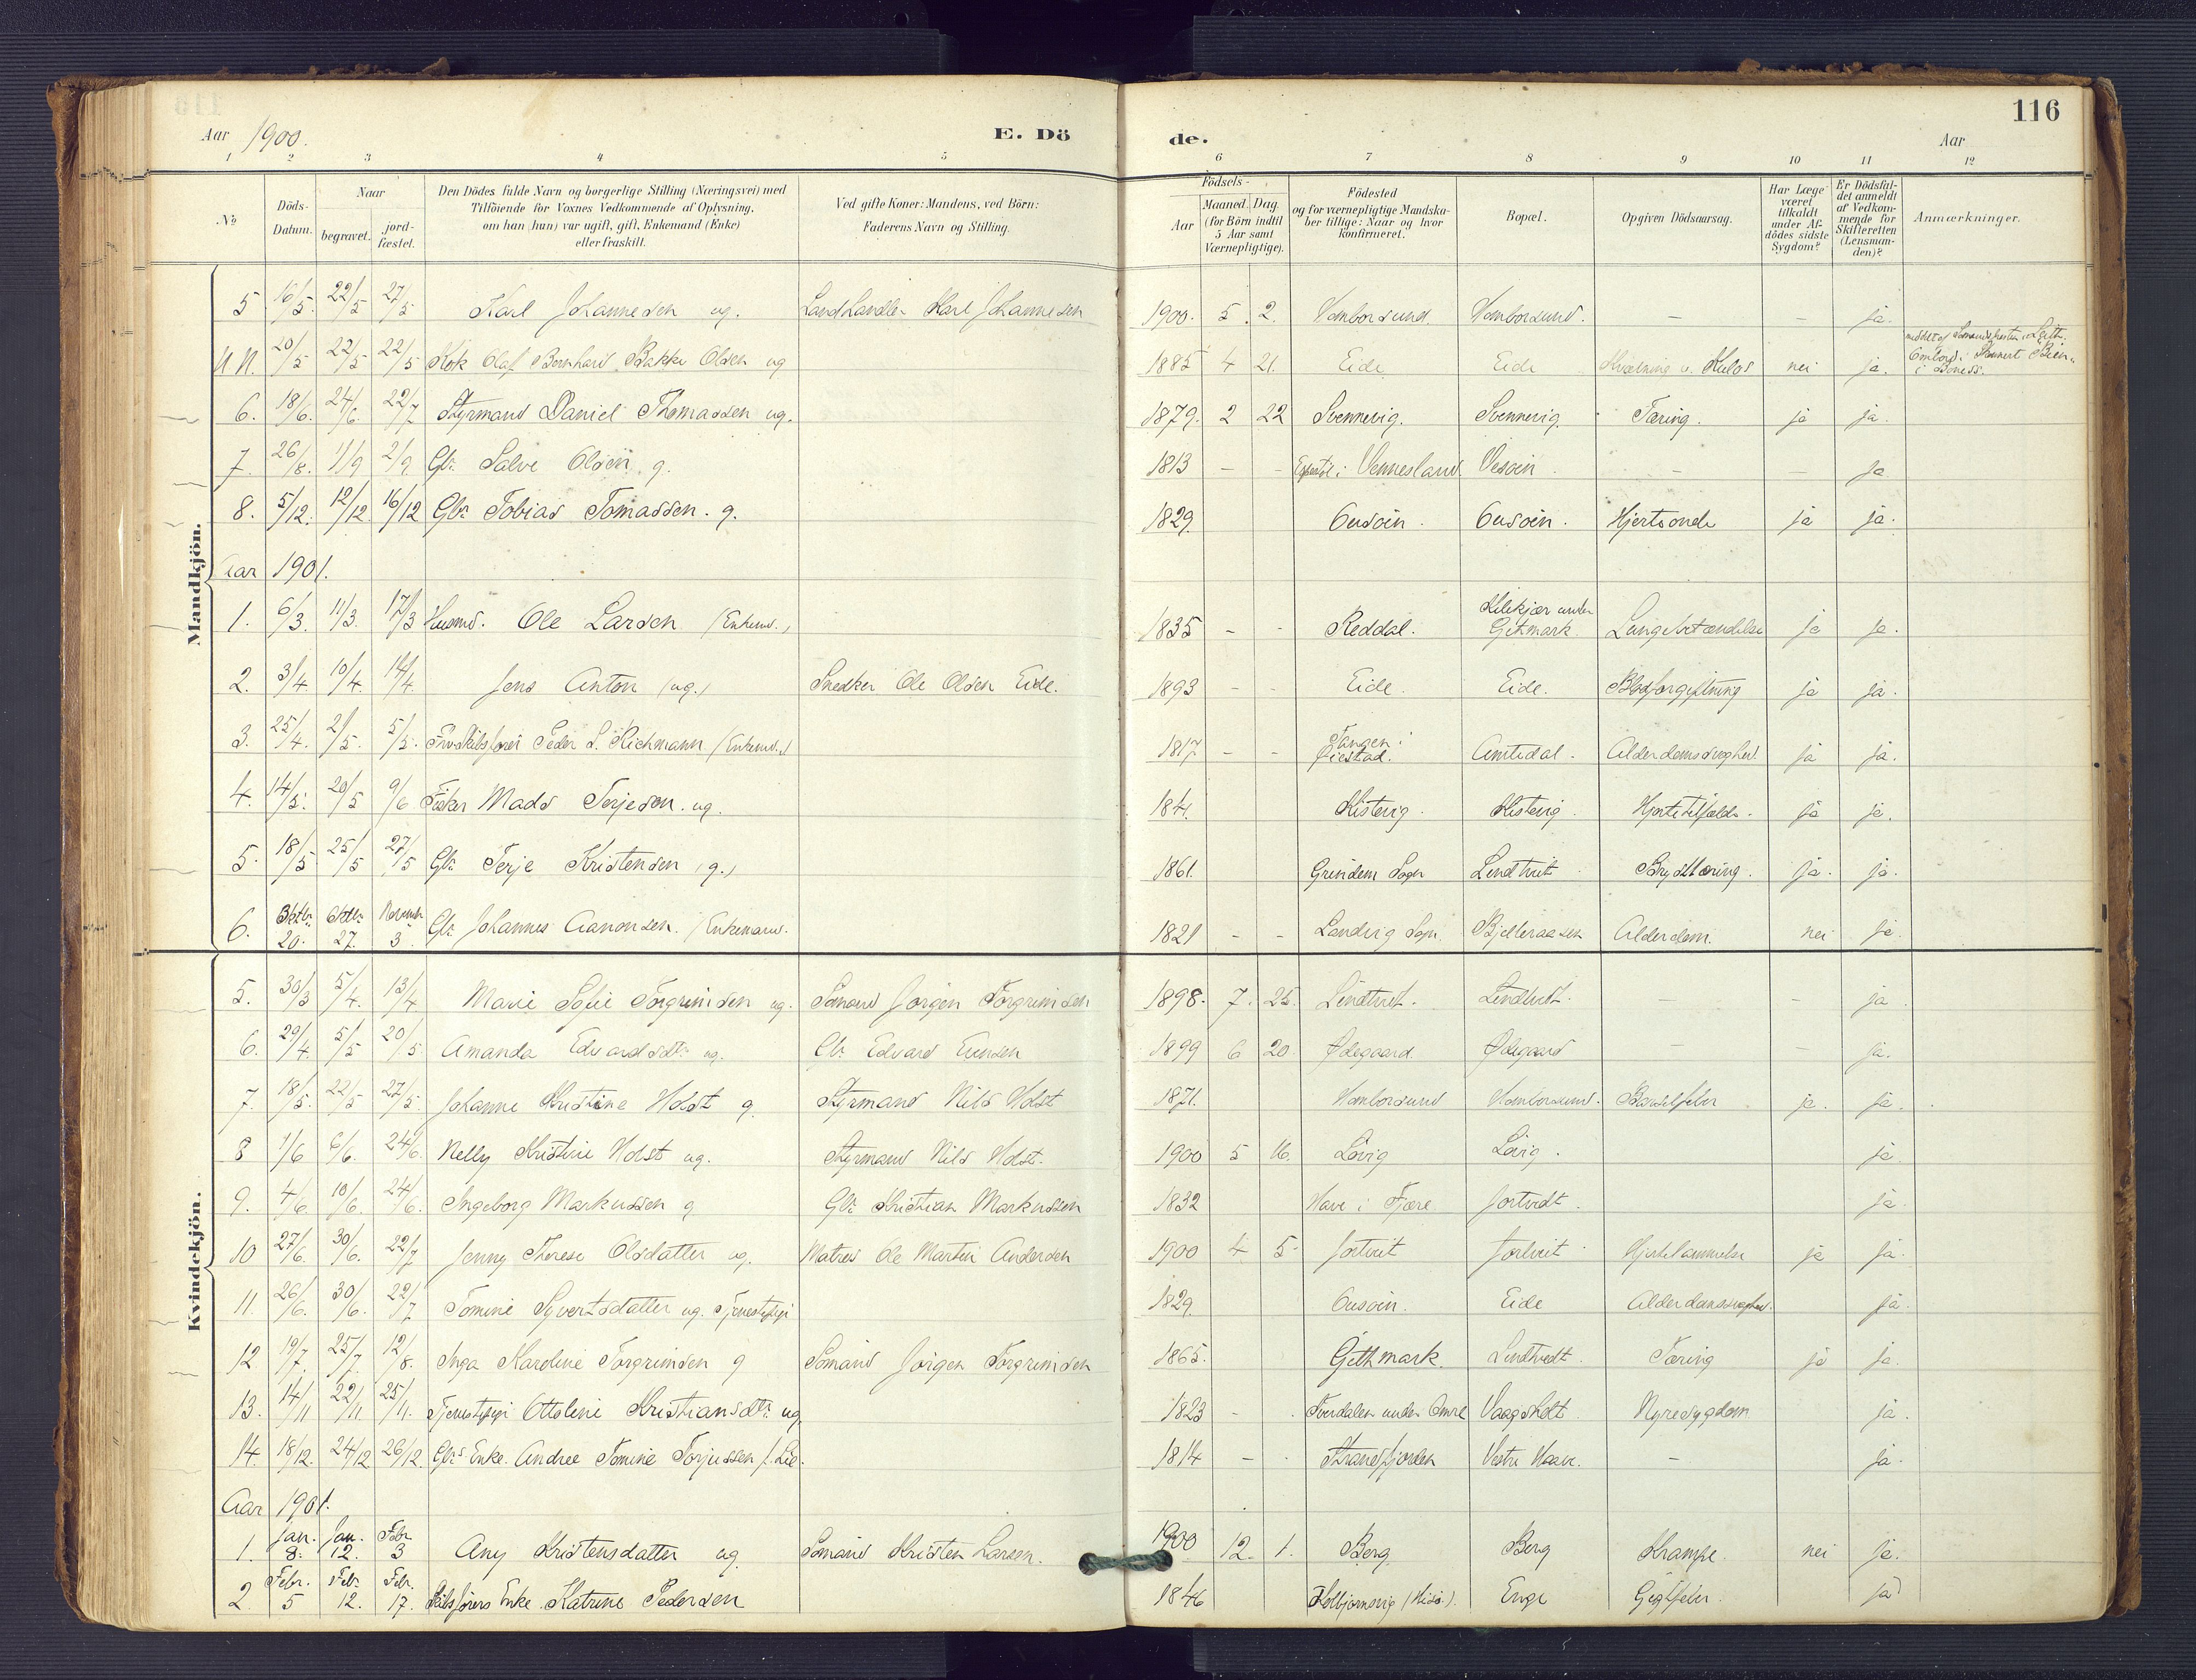 116
Aar 1900. E. Dö de. Aar
1 2 3 4 5 6 7 8 9 10 11 12
No
Döds-Datum.
Naar
begravet.
jord-fæstet.
Den Dödes fulde Navn og borgerlige Stilling (Næringsvei) med
Tilföiende for Voxnes Vedkommende af Oplysning,
om han (hun) var ugift, gift, Enkemand (Enke)
eller fraskilt.
Ved gifte Koner: Mandens, ved Börn:
Faderens Navn og Stilling.
Födsels-
Aar
Maaned. Dag.
(for Börn indtil
5 Aar samt
Værnepligtige).
Födested
og for værnepligtige Mandska-
ber tillige: Naar og hvor
konfirmeret.
Bopæl.
Opgiven Dödsaarsag.
Har Læge
været
tilkaldt
under Af-
dödes sidste
Sygdom?
Er Dödsfal-
det anmeldt
af Vedkom-
mende for
Skifteretten
(Lensman-
den)?
Anmærkninger.
Mandkjön.
5 16/5. 22/5 27/5 Karl Johannesen ug. Landhandler Karl Johannesen 1900. 5. 2. Homborsund. Homborsund. - - ja.
N.N. 20/5 22/5 22/5 Kok Olaf Bernhard Bakke Olsen ug 1885 4 21. Eide Eide Kvælning v. Kulos nei ja. i Boness.
6. 18/6. 24/6. 22/7 Styrmand Daniel Thomassen ug. 1879. 2 22 Svennevig. Svennevig. Tæring. ja ja.
7. 26/8. 1/9 2/9 Gbr. Salve Olsen g. 1813 - - i Vennesland. Vesøen. - - ja
8. 5/12. 12/12. 16/12 Gbr. Tobias Tomassen. g. 1829. Ousøen. Ousøen. Hjertoonde ja ja.
Aar 1901.
1. 6/3. 11/3. 17/3 Husmd. Ole Larsen (Enkemd.) 1835 - - Reddal. Kilekjær under Gitmark. Lungebetændelse ja ja.
2. 3/4. 10/4. 14/4. Jens Anton (ug.) Snedker Ole Olsen Eide. 1893 - - Eide. Eide. Blodforgiftning ja ja.
3. 25/4. 2/5. 5/5. Skibsfører Peder S. Richmann (Enkemd.) 1817 - - Tangen i Øiestad. Amtedal. Alderdomssvaghed. ja ja.
4. 14/5. 20/5 9/6 Fisker Mads Terjesen. ug. 1841. Kistevig. Kistevig. Hjertetilfælde. ja ja.
5. 18/5 25/5 27/5 Gbr. Terje Kristensen (g.) 1861. Grindem Sogn Lindtveit Brysttæring. ja. ja.
6. Oktbr. 20. Oktbr. 27. Novemb. 3 Gbr. Johannes Aanonsen. (Enkemand. 1821 - - Landvig Sogn. Bjelleraasen Alderdom. nei ja.
Kvindekjön.
5. 30/3 5/4. 13/4 Marie Sofie Torgrimsen ug. Sømand Jørgen Torgrimsen 1898. 7. 25. Lindtveit. Lindtvedt. - - ja
6. 29/4. 5/5 20/5 Amanda Edvardsdtr. ug. Gbr. Edvard Evensen 1899 6 20. Ødegaard Ødegaard - - ja.
7. 18/5. 22/5 27/5. Johanne Kristine Holst g. Styrmand Nils Holst 1871. Homborsund Homborsund. Barselfeber ja. ja.
8 1/6 6/6. 24/6. Nelly Kristine Holst ug. Styrmand Nils Holst. 1900 5 16. Løvig Løvig. ja
9. 4/6. 10/6. 24/6. Ingeborg Markussen g Gbr. Kristian Markussen 1832 Have i Fjære Jortvedt. ja.
10 27/6. 30/6. 22/7 Jenny Therese Olsdatter ug. Matros Ole Martin Andersen 1900 4 5 Jortveit Jortveit Hjertelammelse ja ja.
11. 26/6. 30/6. 22/7 Tomine Syvertsdatter ug. 1829. Ousøen. Eide Alderdomssvaghed. ja.
12 19/7. 25/7. 12/8. Inga Karoline Torgrimsen g Sømand Jørgen Torgrimsen 1865. Githmark. Lindtvedt. Tæring ja ja.
13. 14/11 22/11 25/11. Ottoline Kristiansdtr. ug. 1823 - Tverdalen under Omre Vaagsholt. Nyresygdom ja.
14. 18/12. 24/12 26/12 Gbrs. Enke. Andrea Tomine Torjussen f. Lie. 1814 - Strandfjorden Vestre Haave. - ja.
Aar 1901.
1. Jan. 8. Jan. 12. Febr. 3 Any Kristensdatter ug Sømand Kristen Larsen. 1900 12. 1. Berg Berg Krampe. nei ja.
2. Febr. 5 Febr. 12. Febr. 17. Skibsførers Enke. Katrine Pedersen 1846 Kolbjørnsvig (Hisø). Enge Gigtfeber. ja